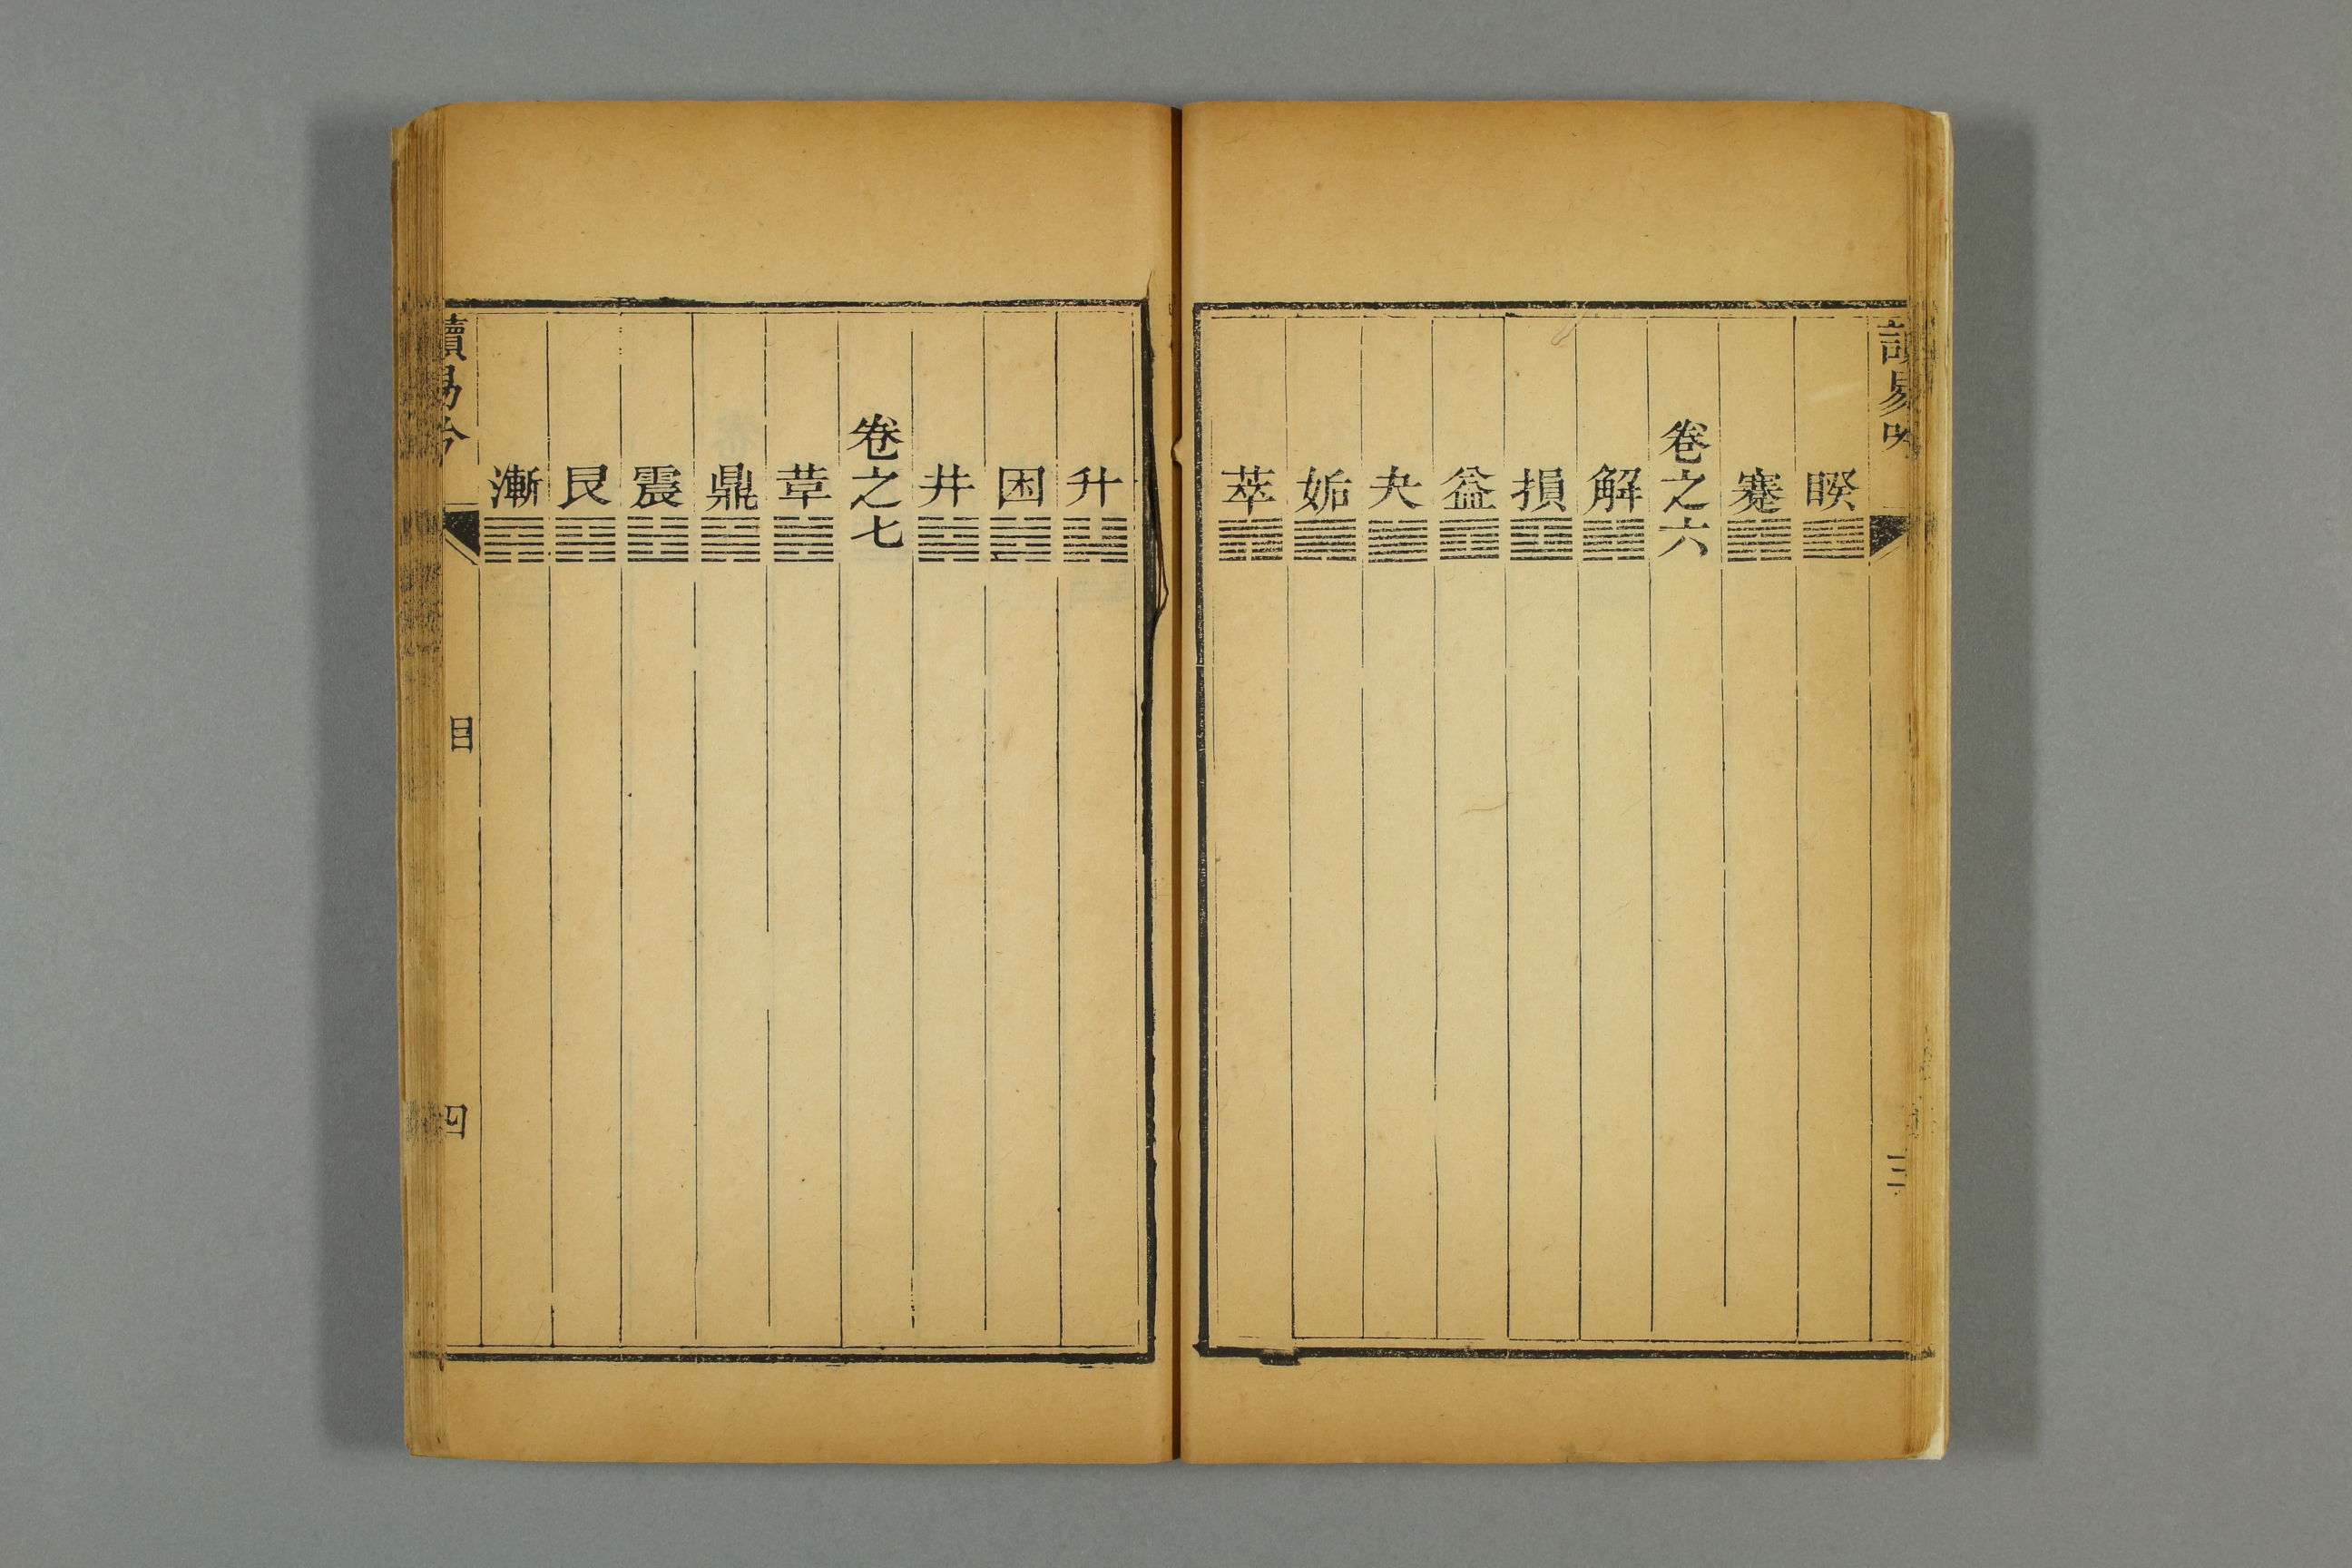 睽䷥
蹇䷦
卷之六
解䷧
損䷨
益䷩
夬䷪
姤䷫
萃䷬
三
升䷭
困䷮
井䷯
卷之七
革䷰
鼎䷱
震䷲
艮䷳
漸䷴
讀易
目
四